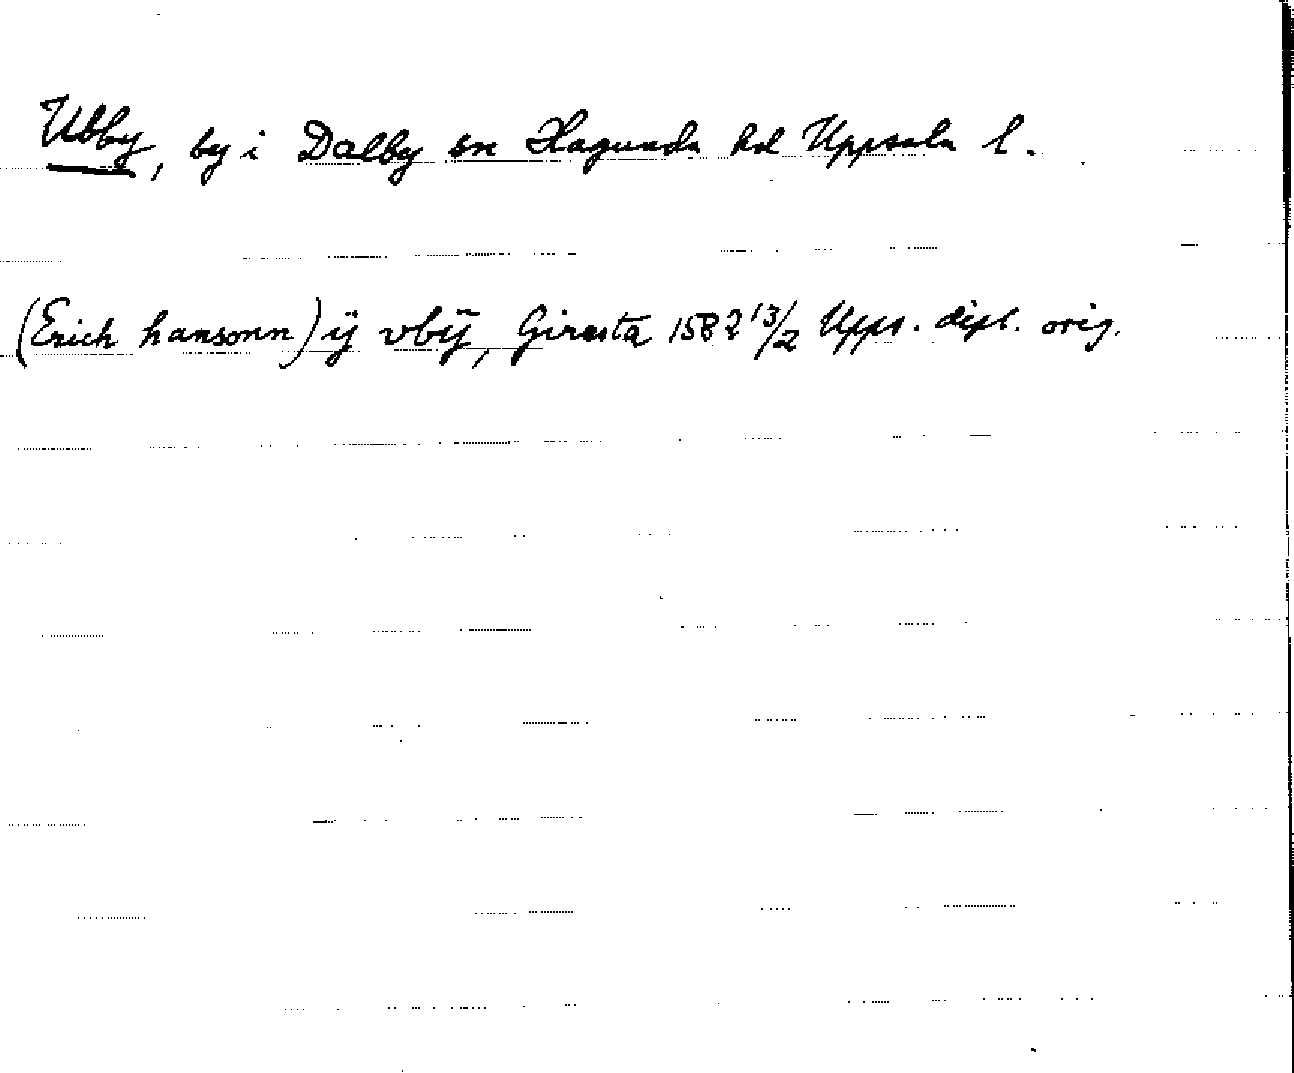 Ubby, by i Dalby sn Hagunda hd Uppsala l.
(Erich hansonn) ÿ vbÿ, Giresta 1582 13/2 Upps. dipl. orig.